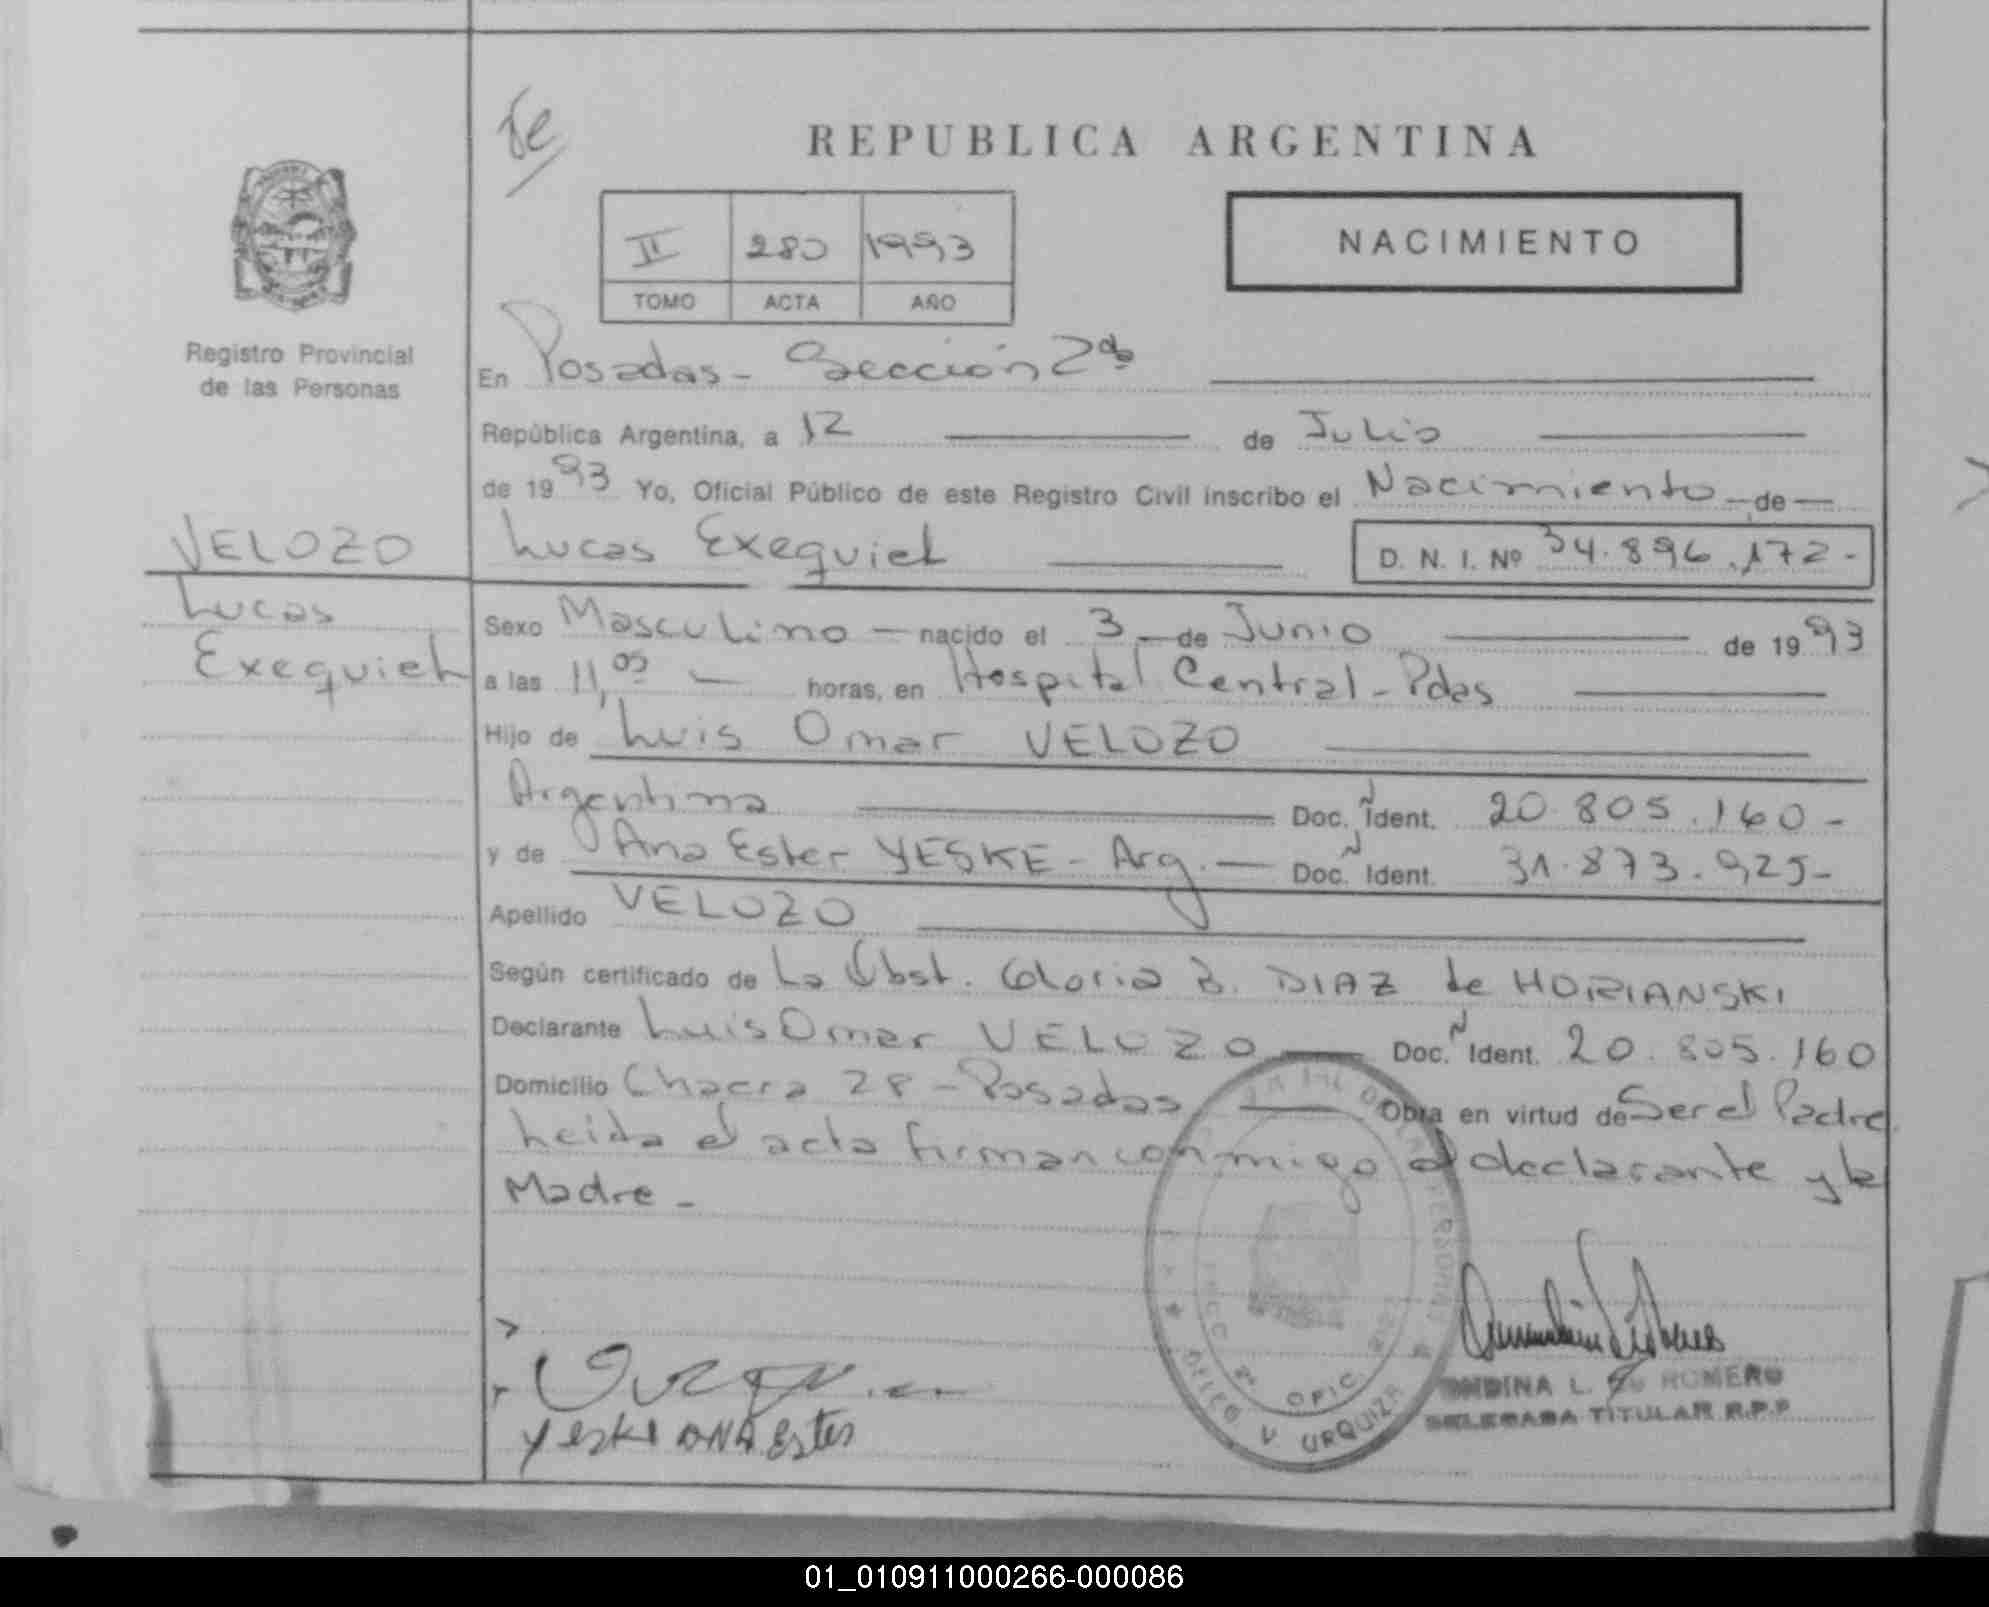 Te
REPUBLICA ARGENTINA
II 280 1993
TOMO ACTA AÑO
NACIMIENTO
Registro Provincial
de las Personas
En Posadas - Sección 2da
República Argentina, a 12 de Julio
de 1993 Yo, Oficial Público de este Registro Civil inscribo el Nacimiento de
VELOZO
Lucas
Exequiel
Lucas Exequiel D. N. I. Nº 34.896.172-
Sexo Masculino - nacido el 3 de Junio de 1993
a las 11,05 horas, en Hospital Central - Pdas
Hijo de Luis Omar VELOZO
Argentina Doc. N Ident. 20.805.160-
y de Ana Ester YESKE - Arg. Doc. N Ident. 31.873.925-
Apellido VELOZO
Según certificado de La Obst. Gloria B. DIAZ de HORIANSKI
Declarante Luis Omar VELOZO Doc. N Ident. 20.805.160
Domicilio Chacra 28 - Posadas Obra en virtud de Ser el Padre.
Leida el acta firman conmigo el declarante y la
Madre -
OFIC. 2ª
URQUIZA
L. de ROMERO
DELEGADA TITULAR R.P.P
Yeske ANA Ester
01_010911000266-000086